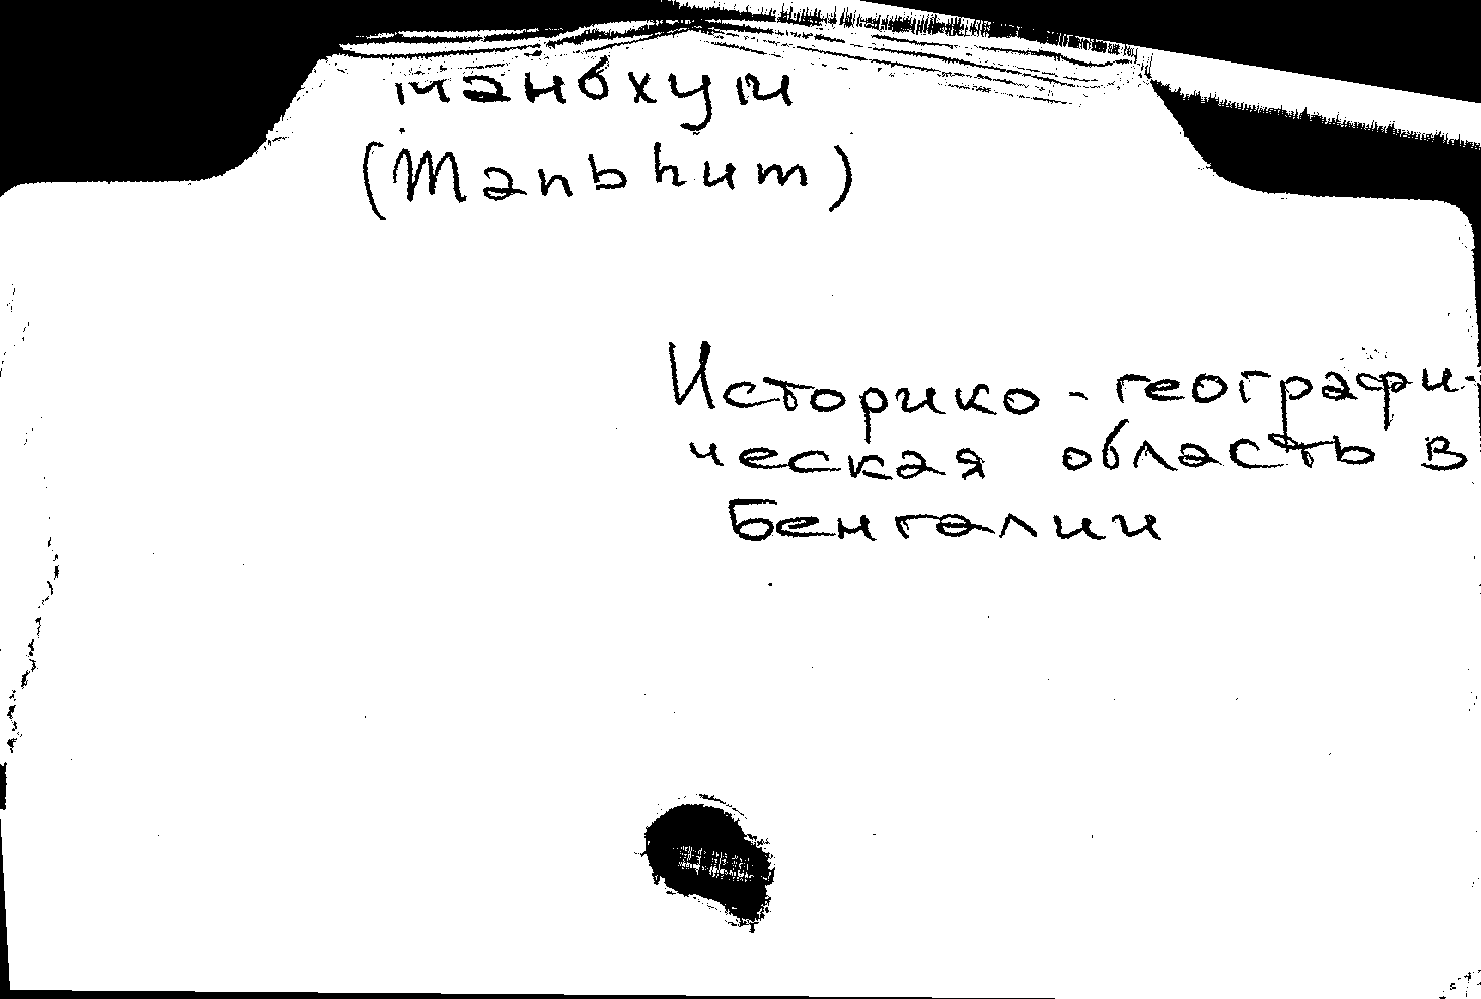 Манбхум
(Manbhum)
Историко-географи-
ческая область в
Бенгалии